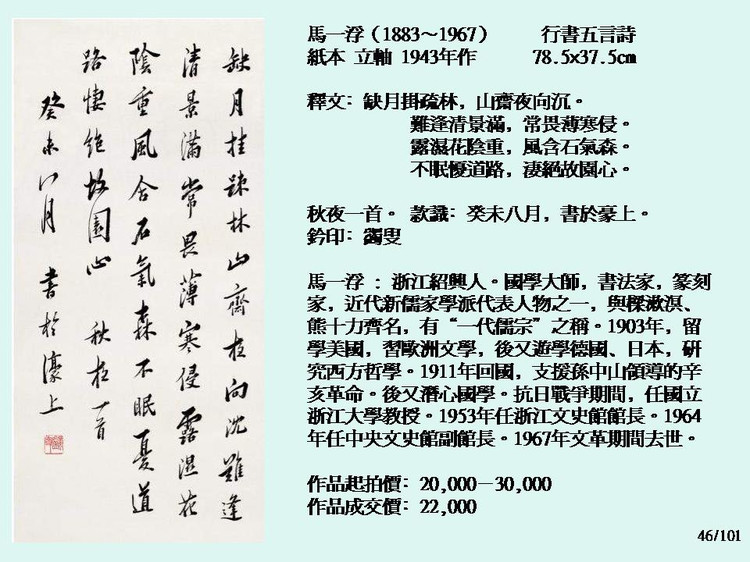 缺月挂疎林山齋夜向沈難逢
清景滿常畏薄寒侵露濕花
陰重風含石氣森不眠憂道
路悽絕故園心 秋夜一首
癸未八月 書於濠上
馬一浮（1883～1967） 行書五言詩
紙本 立軸 1943年作 78.5x37.5cm
釋文: 缺月掛疏林，山齋夜向沉。
難逢清景滿，常畏薄寒侵。
露濕花陰重，風含石氣森。
不眠懮道路，淒絕故園心。
秋夜一首。 款識: 癸未八月，書於豪上。
鈐印: 蠲叟
馬一浮 : 浙江紹興人。國學大師，書法家，篆刻
家，近代新儒家學派代表人物之一，與樑漱溟、
熊十力齊名，有“一代儒宗”之稱。1903年，留
學美國，習歐洲文學，後又遊學德國、日本，研
究西方哲學。1911年回國，支援孫中山領導的辛
亥革命。後又潛心國學。抗日戰爭期間，任國立
浙江大學教授。1953年任浙江文史館館長。1964
年任中央文史館副館長。1967年文革期間去世。
作品起拍價: 20,000－30,000
作品成交價: 22,000
46/101